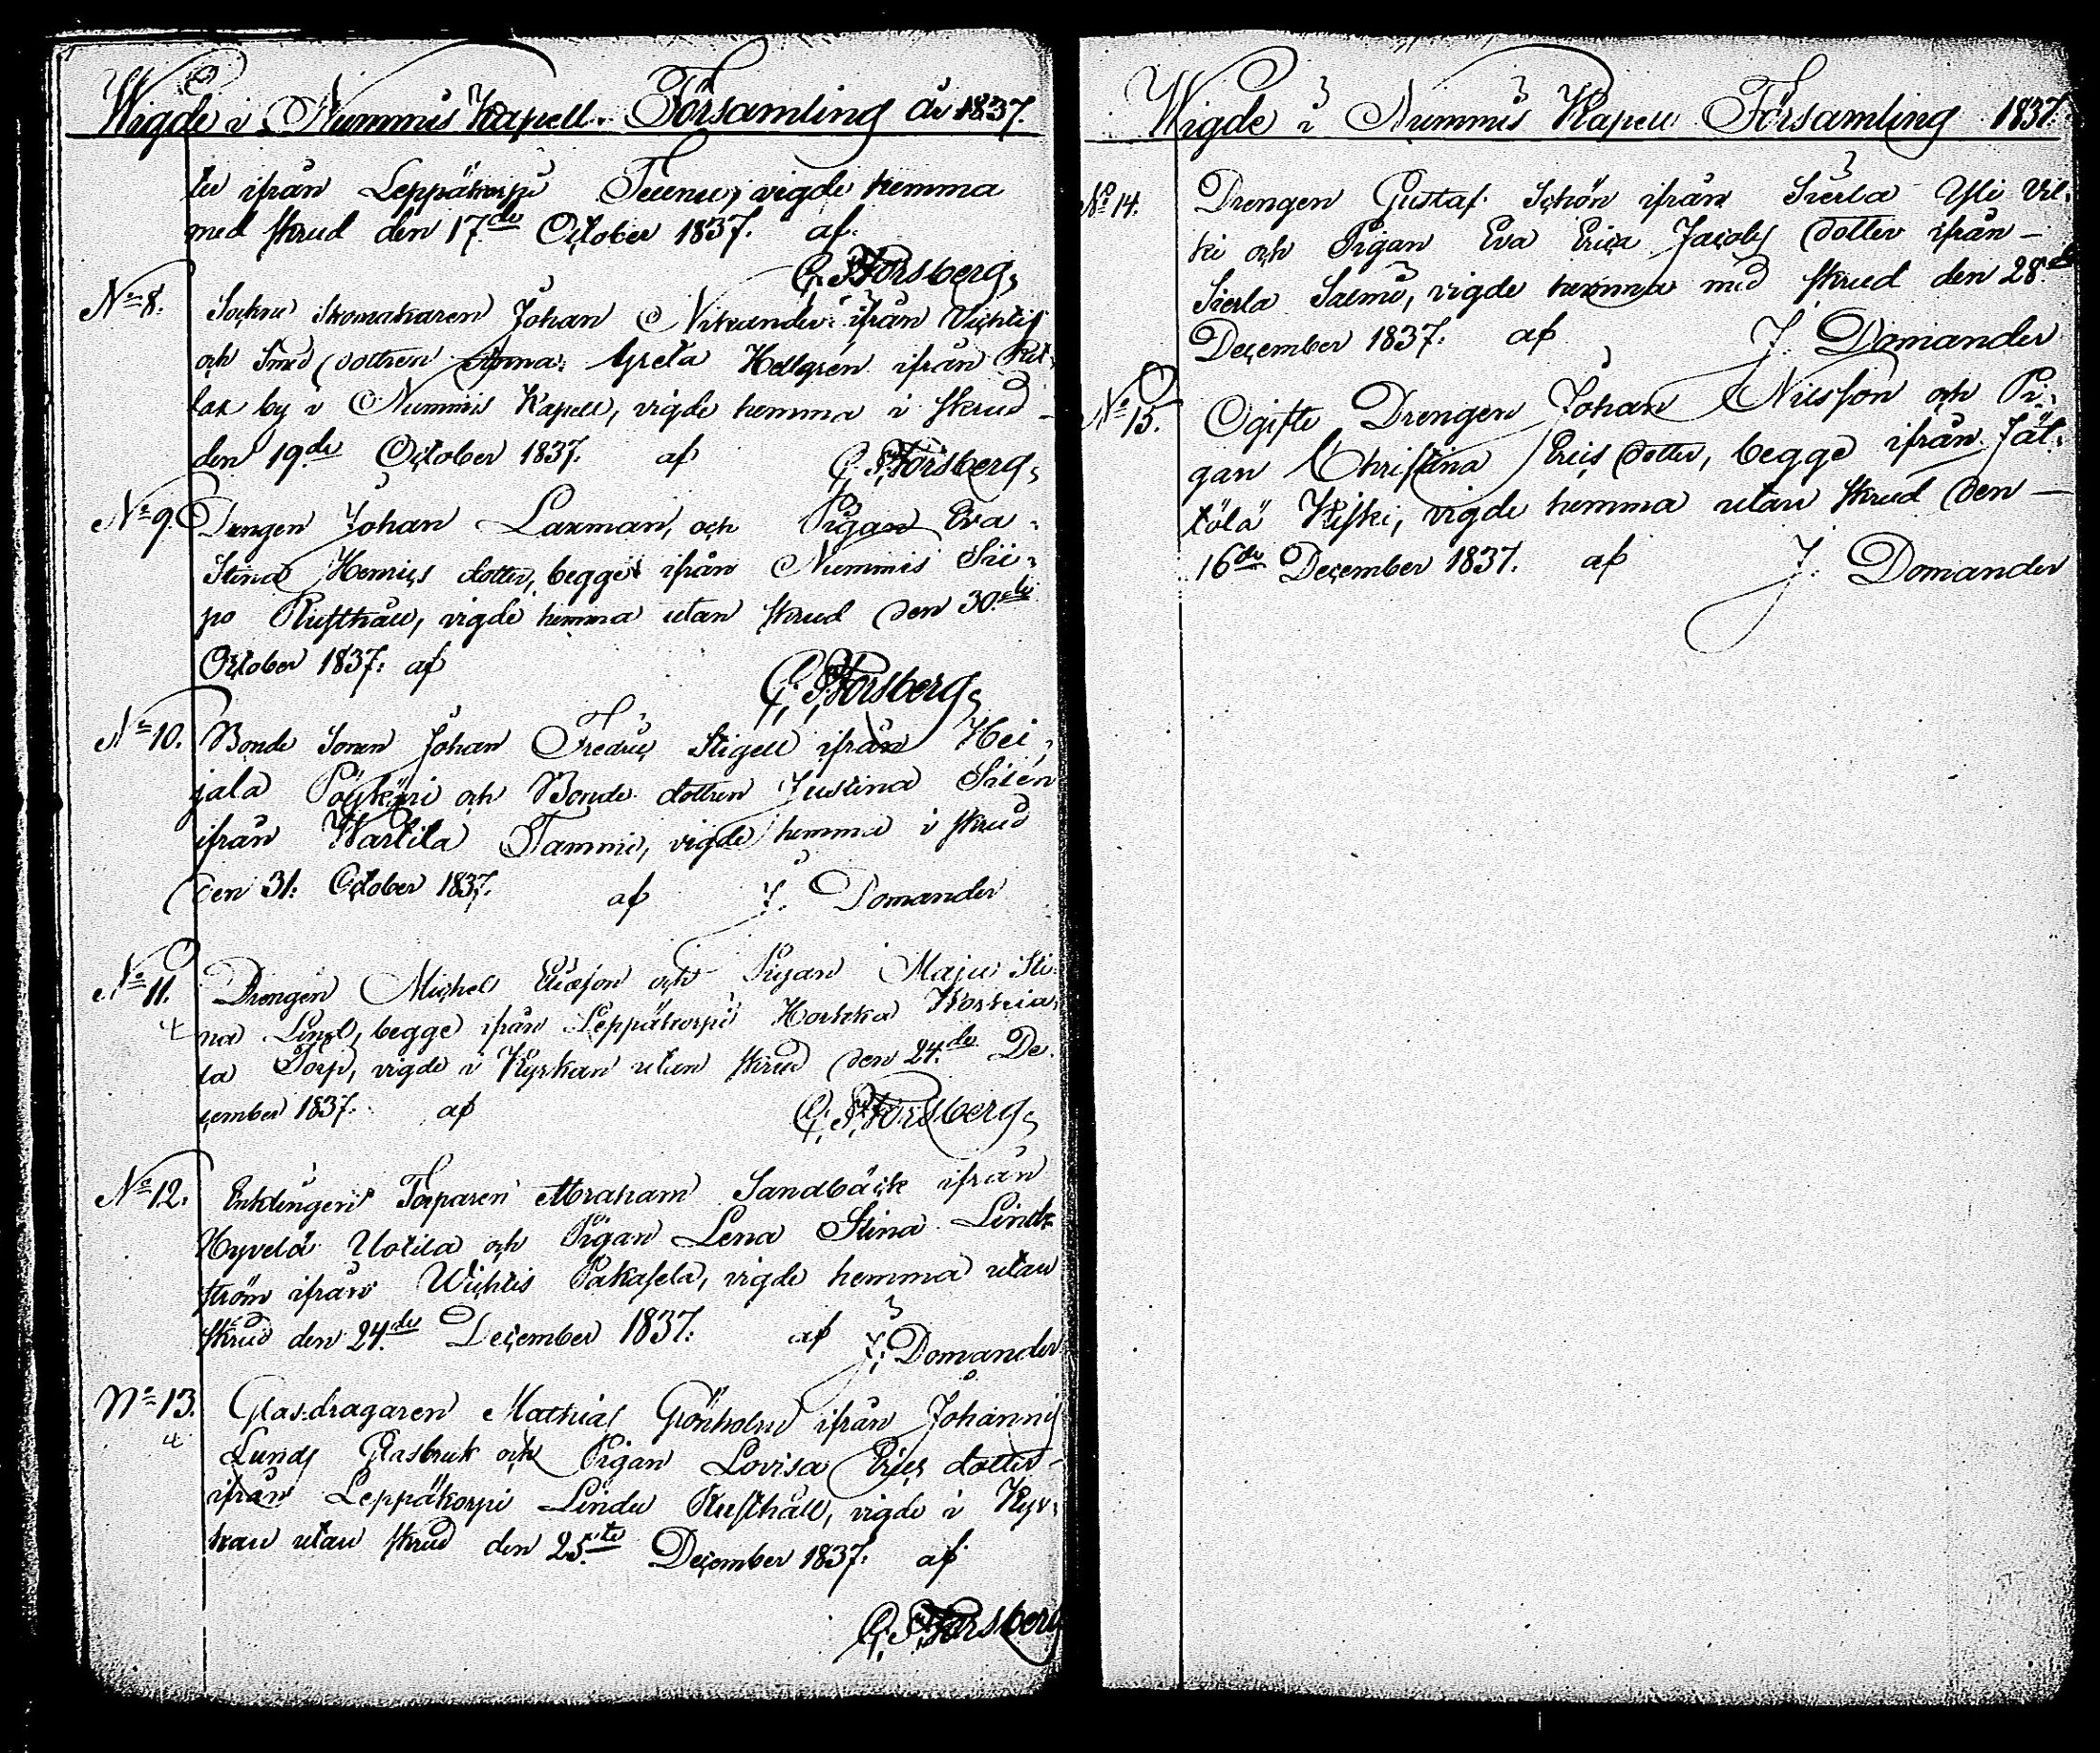 Wigde i Nummis Kapell Församling år 1837.
ter ifrån Leppäkorpi Teenu, vigde hemma
med skrud den 17de October 1837. af
Forsberg
No 8. Sockne Skomakaren Johan Nikander ifrån Vichtis
och Smed dottren Anna Greta Hellgren ifrån
lax by i Nummis Kapell, vigde hemma i skrud
den 19de October 1837. af Forsberg
No 9. Drengen Johan Laxman, och Pigan Eva
Stina Henrics dotter, begge ifrån Nummis Sii-
po Rusthåll, vigde hemma utan skrud den 30de
October 1837. af
Forsberg
No 10. Bonde Sonen Johan Fredric Stigell ifrån Hei-
jala Pöykäri och Bonde dottren Justina Silén
ifrån Wartila Tammi, vigde hemma i skrud
den 31. October 1837. af J. Domander
No 11. Drengen Michel Ericsson och Pigan Maja Sti-
na Lind, begge ifrån Leppäkorpi Horkka Koskia-
la Torp, vigde i Kyrkan utan skrud den 24de De-
cember 1837. af Forsberg
No 12. Enklingen Torparen Abraham Sandbäck ifrån
Hyvelä Uotila och Pigan Lena Stina Lind-
ström ifrån Wichtis Pakasela, vigde hemma utan
skrud den 24de December 1837. af J. Domander
No 13. Glasdragaren Mathias Grönholm ifrån Johannis
Lunds Glasbruk och Pigan Lovisa Erics dotter
ifrån Leppäkorpi Lindu Rusthåll, vigde i Kyr-
kan utan skrud den 25te December 1837. af
Forsberg
Wigde i Nummis Kapell Församling 1837.
No 14. Drengen Gustaf Schön ifrån Sierla Yli Vil-
ki och Pigan Eva Erica Jacobs dotter ifrån
Sierla Salmi, vigde hemma med skrud den 28de
December 1837. af J. Domander
No 15. Ogifte Drengen Johan Nilsson och Pi-
gan Christina Erics dotter, begge ifrån Jät-
tölä Kiski, vigde hemma utan skrud den
16de December 1837. af J. Domander